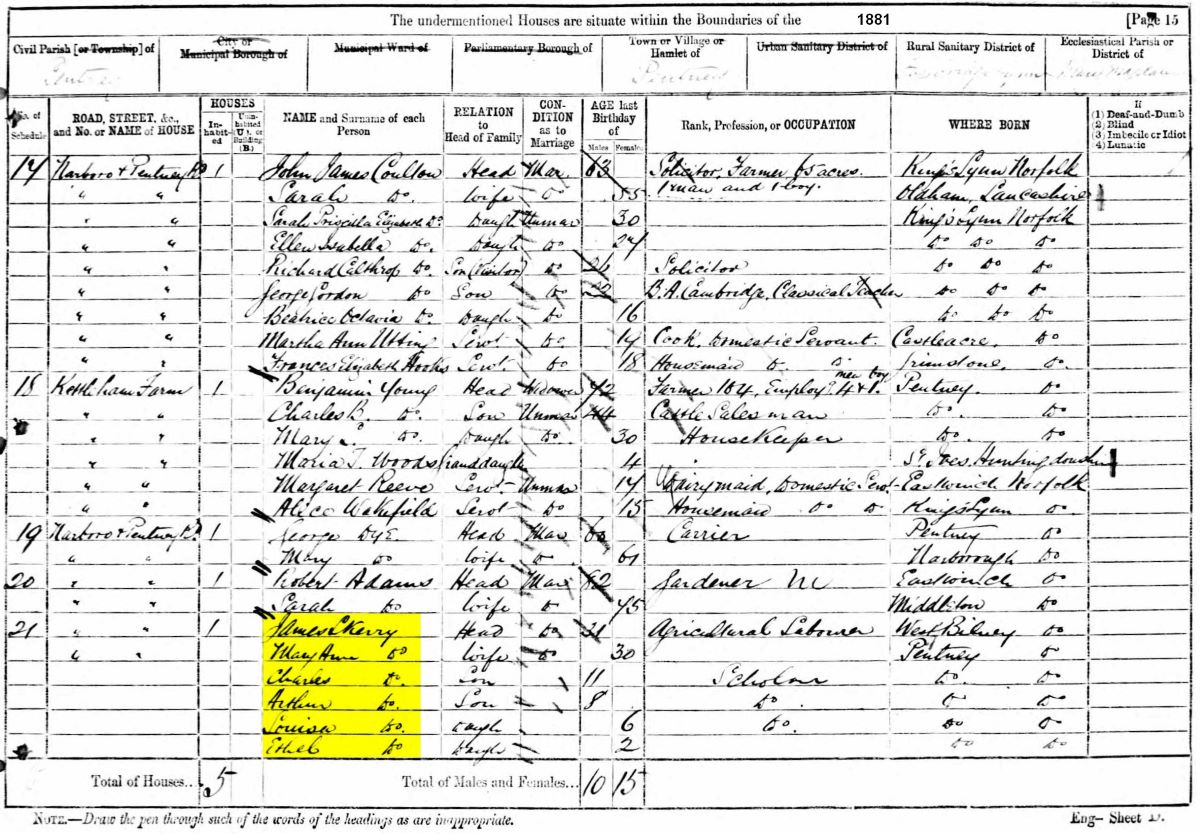 The undermentioned Houses are situate within the Boundaries of the 1881 [Page 15
Civil Parish [or Township] of City or Municipal Borough of Municipal Ward of Parliamentary Borough of Town or Village or Hamlet of Urban Sanitary District of Rural Sanitary District of Ecclesiastical Parish or District of
Pentney Pentney
No. of Schedule ROAD, STREET, &c., and No. or NAME of HOUSE HOUSES Inhabited Uninhabited (U.), or Building (B.) NAME and Surname of each Person RELATION to Head of Family CONDITION as to Marriage AGE last Birthday of Males Females Rank, Profession, or OCCUPATION WHERE BORN If (1) Deaf-and-Dumb (2) Blind (3) Imbecile or Idiot (4) Lunatic
17 Narboro + Pentney Rd 1 John James Coulton Head Mar 63 Solicitor, Farmer 65 acres. King's Lynn Norfolk
" " Sarah Do. Wife Do 55 1 man and 1 boy. Oldham, Lancashire
" " Sarah Priscilla Elizabeth Do Daugh Unmar 30 King's Lynn Norfolk
" " Ellen Isabella Do Daugh Do Do Do Do
" " Richard Calthrop Do Son (Visitor) Do Solicitor Do Do Do
" " George Gordon Do Son Do 22 B.A. Cambridge, Classical Teacher Do Do Do
" " Beatrice Octavia Do Daugh Do 16 Do Do Do
" " Martha Ann Utting Servt Do 14 Cook, Domestic Servant. Castleacre. Do
" " Frances Elizabeth Hooks Servt. Do 18 Housemaid Do Do Grimstone. Do
18 Kettleham Farm 1 Benjamin Young Head Widower 72 Farmer 184, Employg 4 men + 1 boy Pentney. Do
" " Charles B. Do. Son Unmar 44 Cattle Salesman Do. Do
" " Mary Do. Daugh Do. 30 Housekeeper Do. Do
" " Maria T. Woods Granddaughter 4 St Ives. Huntingdonshire
" " Margaret Reeve Servt Unmar 17 Dairymaid, Domestic Servt Eastwinch Norfolk
" " Alice Wakefield Servt Do 15 Housemaid Do Do King's Lynn Do
19 Narboro + Pentney Rd 1 George DYE Head Mar 60 Carrier Pentney Do
" " Mary Do Wife Do 61 Narborough Do
20 " " 1 Robert Adams Head Mar 82 Gardener Eastwinch Do
" " Sarah Do Wife Do 75 Middleton Do
21 " " 1 James Skerry Head Do 31 Agricultural Labourer West Bilney Do
" " Mary Ann Do Wife Do 30 Pentney Do
Charles Do. Son 11 Scholar Do. Do
Arthur Do. Son 8 Do. Do Do
Louisa Do. Daugh 6 Do. Do Do
Ethel Do Daugh 2 Do Do
Total of Houses... 5 Total of Males and Females... 10 15
NOTE.—Draw the pen through such of the words of the headings as are inappropriate. Eng– Sheet D.